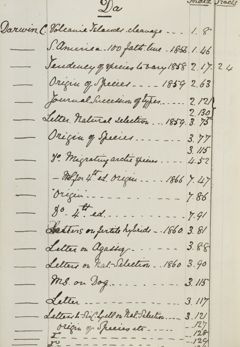 Index Tracts
Da
Darwin C. Volcanic Islands cleavage 1. 8
S. America. 100 fath. line. 1853 1.46
Tendency of species to vary 1858 2.17. 24
Origin of Species 1859 2.63
Journal Succession of types 2.121
2.130
Letter Natural Selection 1859. 3.75
Origin of Species 3.77
3.115
Migrating arctic species 4.52
for 4th ed. origin 1866 7.47
"Origin" 7.86
Do. 4th ed. 7.91
Letters on fertile hybrids 1860 3.81
Letter on Agassiz 3.88
Letters on Nat. Selection 1860 3.90
MS. on Dog 3.115
Letter 3.117
Letters to Sir C. Lyell on Nat. Selection 3.121
origin of Species etc. 127
128
129